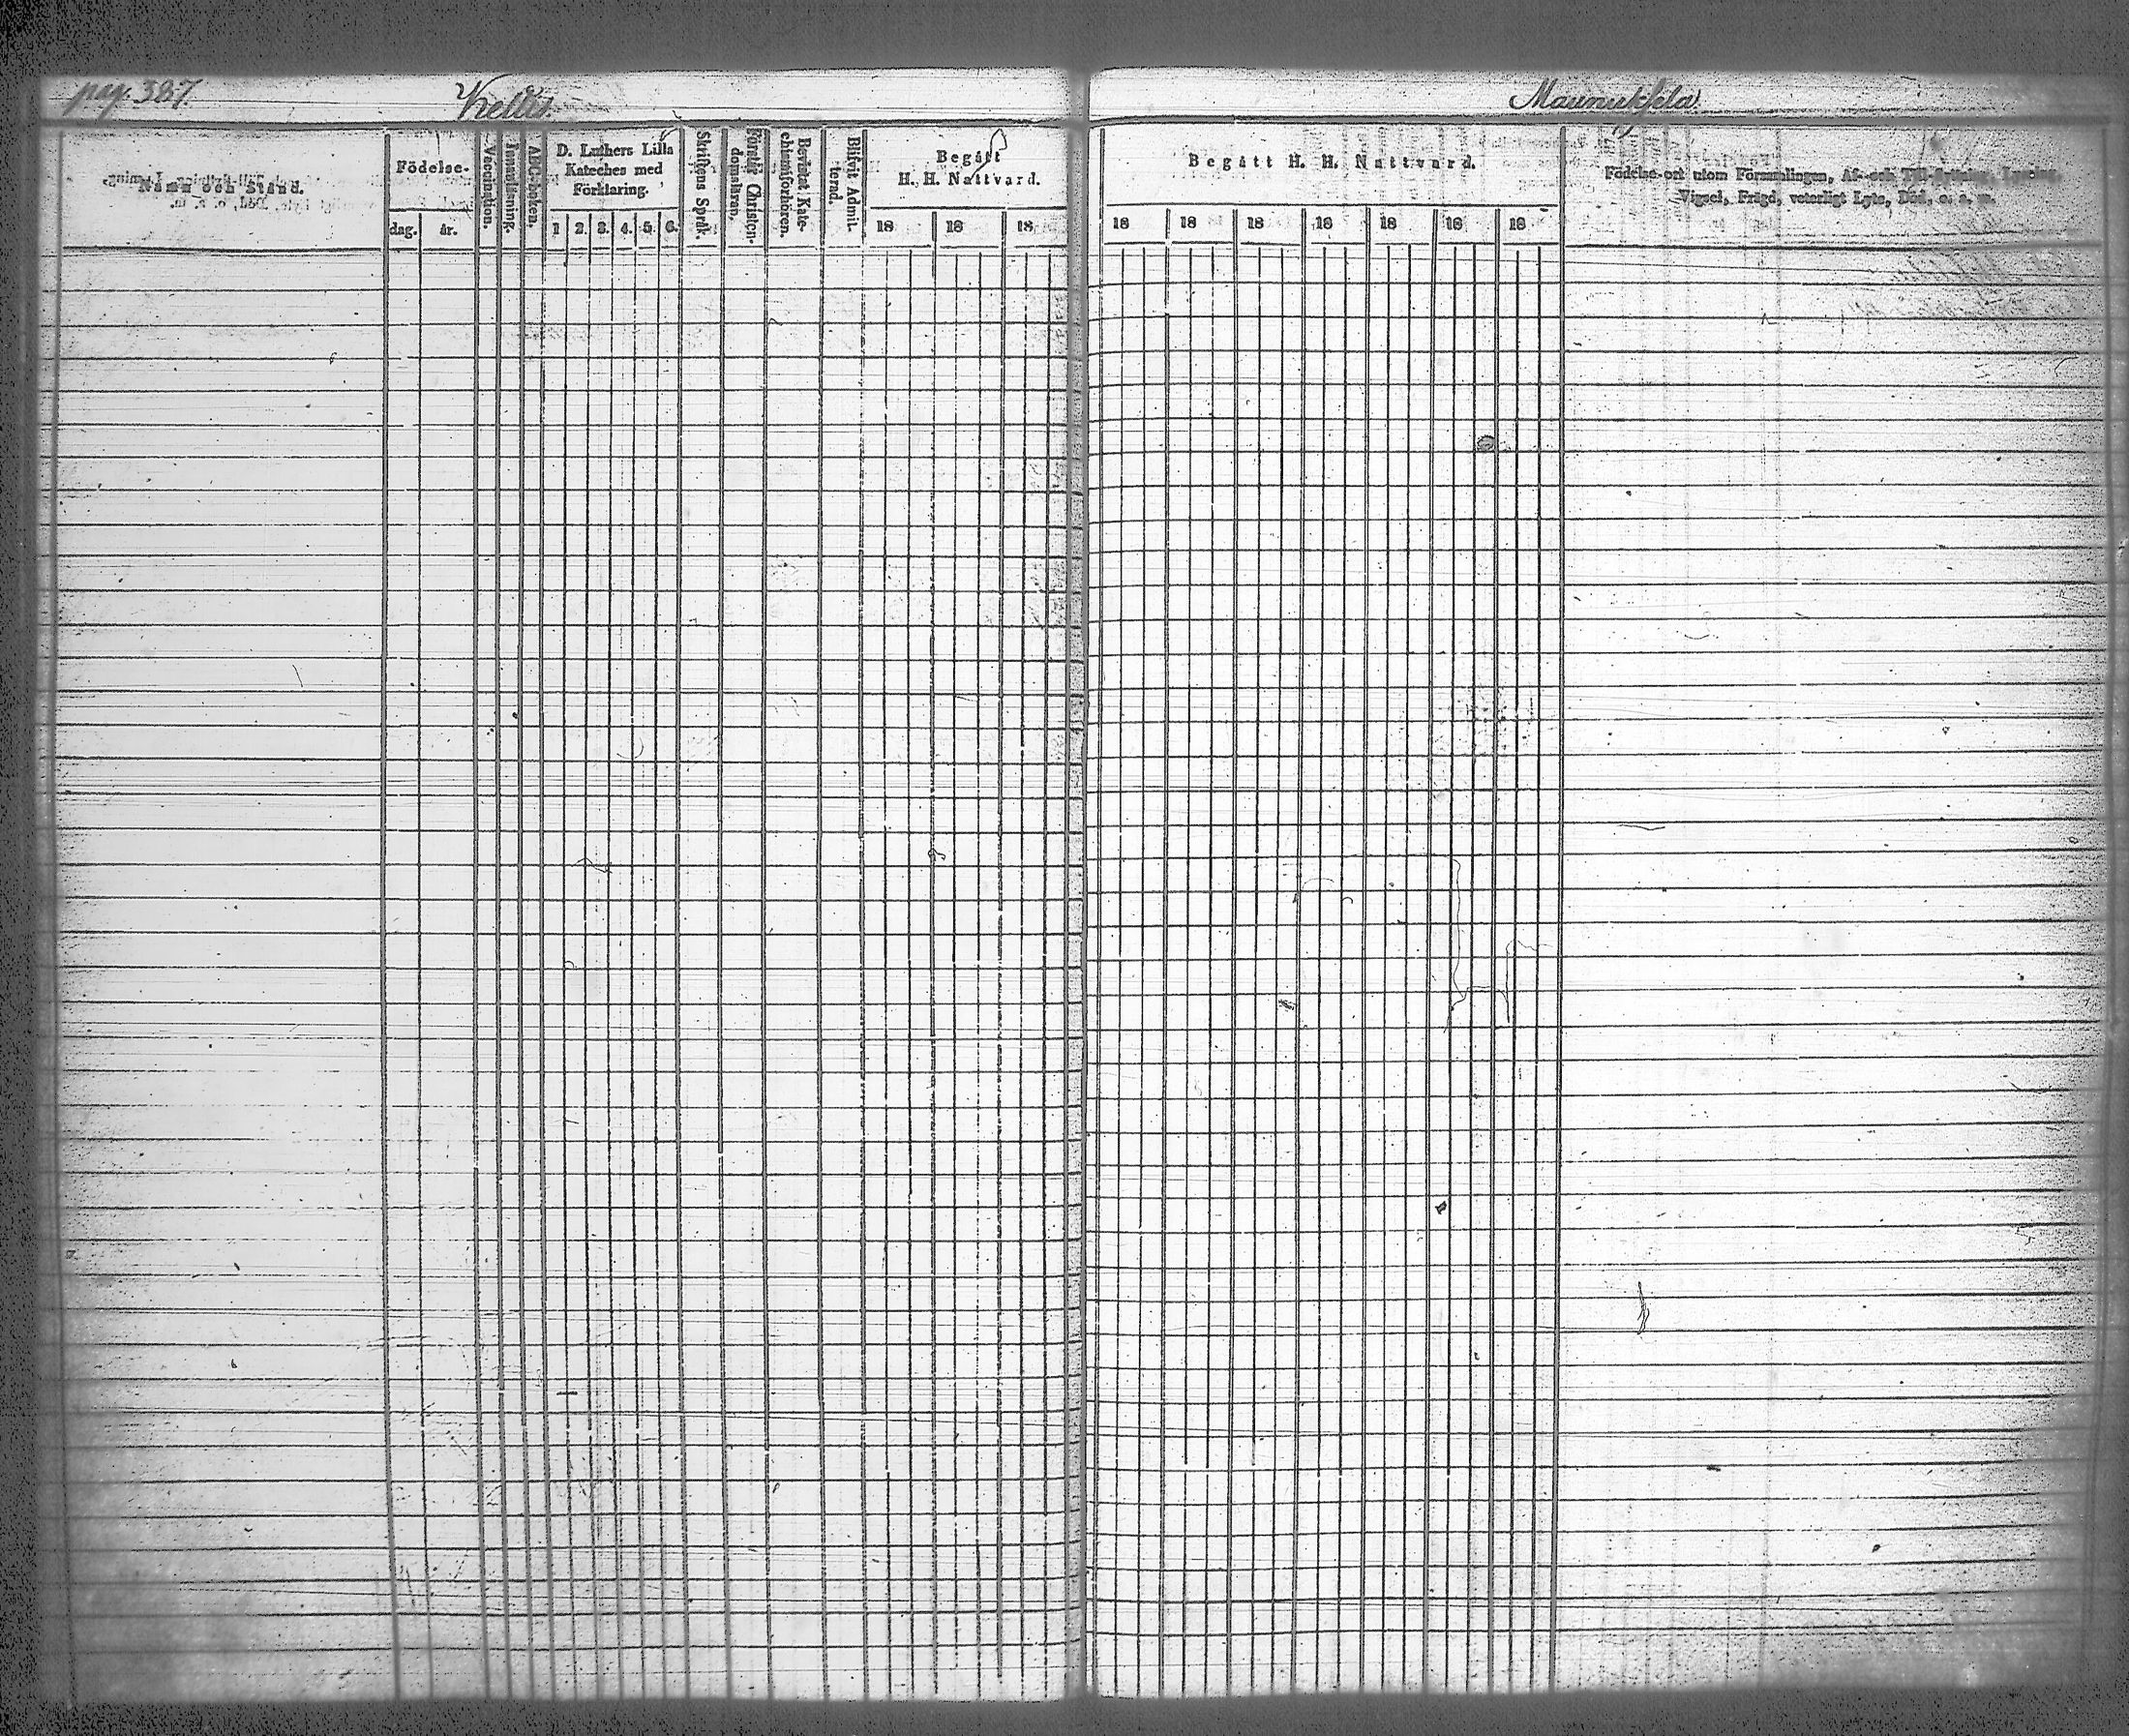 pag. 387. Keltis. Maunukkela
Namn och Stånd.
Födelse-
dag. år.
Vaccination.
Innanläsning.
ABC-boken.
D. Luthers Lilla
Kateches med
Förklaring.
1 2. 3. 4. 5. 6.
Skriftens Språk.
Förstår Christen-
domsläran.
Bevistat Kate-
chismiförhören.
Blifvit Admit-
terad.
Begått
H. H. Nattvard.
18 18 18
Begått H. H. Nattvard.
18 18 18 18 18 18 18
Födelse-ort utom Församlingen, Af- och Till-flyttning, Lysning,
Vigsel, Frägd, veterligt Lyte, Död, o. s. m.